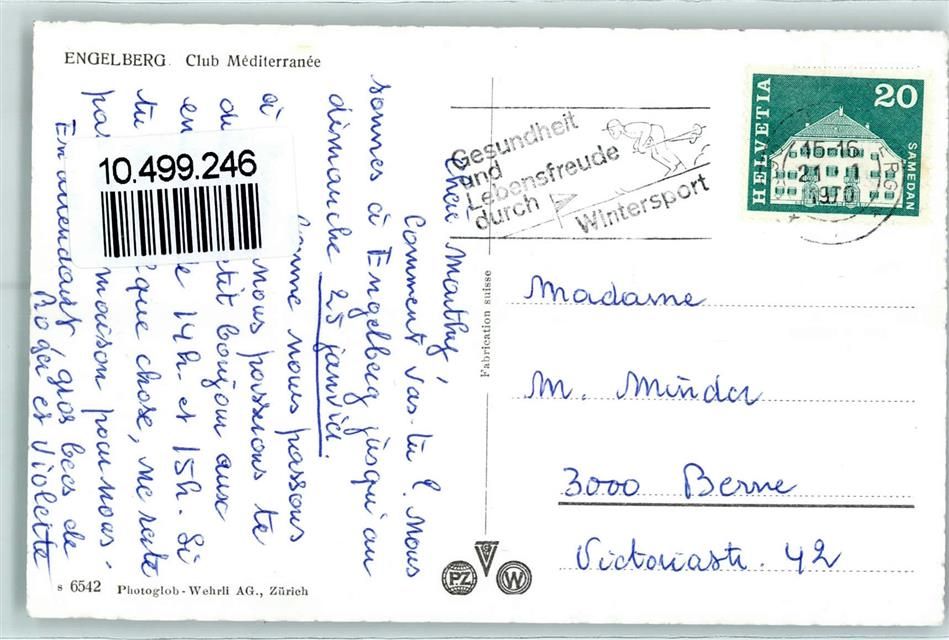 ENGELBERG. Club Méditerranée
Chère Mouthy,
Comment vas-tu ? Nous
sommes à Engelberg jusqu'au
dimanche 25 janvier.
Comme nous passons
à Nous passons te
petit bonjour aux
en 14h. et 15h. Si
tu que chose, ne reste
pas maison pour nous.
En attendant, gros becs de
Roger et Violette
10.499.246
Gesundheit
und
Lebensfreude
durch
Wintersport
HELVETIA
20
SAMEDAN
15-16
21 1
1970
Fabrication suisse
Madame
M. Minder
3000 Berne
Victoriastr. 42
PZ
W
s 6542 Photoglob-Wehrli AG., Zürich